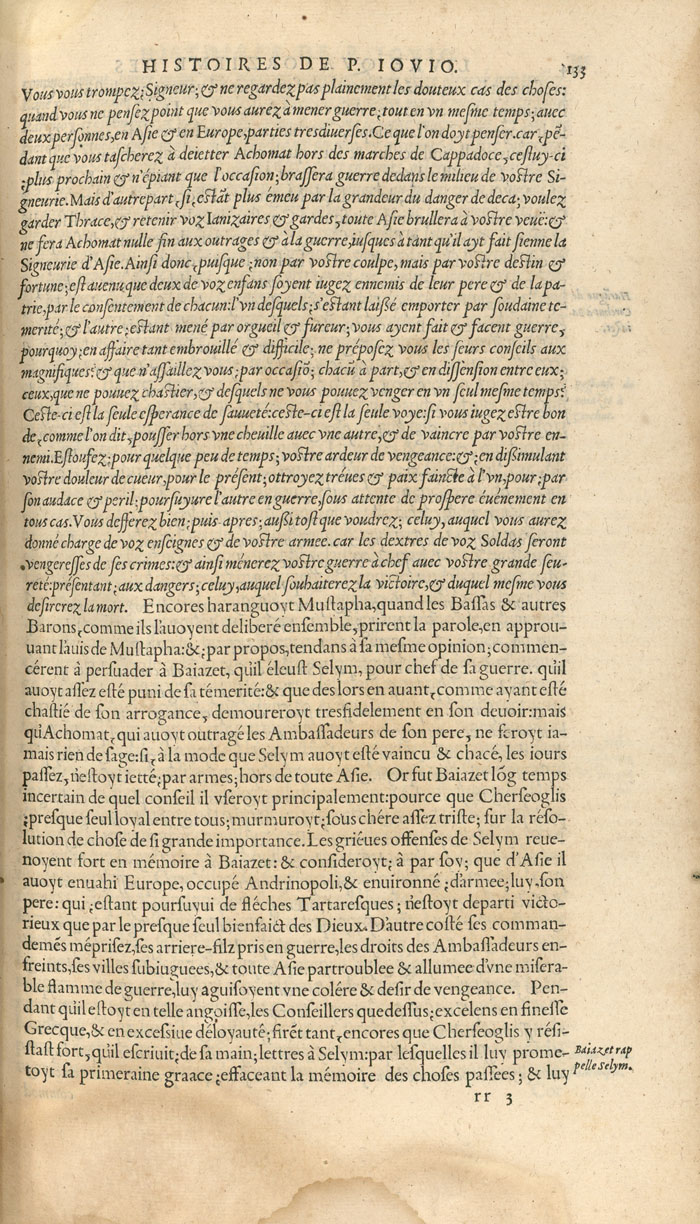 HISTOIRES DE P. IOVIO. 133
Vous vous trompez; Signeur; & ne regardez pas plainement les douteux cas des choses:
quand vous ne pensez point que vous aurez à mener guerre; tout en vn mesme temps; auec
deux personnes, en Asie & en Europe, parties tresdiuerses. Ce que l'on doyt penser. car, pē-
dant que vous tascherez à deietter Achomat hors des marches de Cappadoce, cestuy-ci
;plus prochain & n'épiant que l'occasion; brassera guerre dedans le milieu de vostre Si-
gneurie. Mais d'autrepart, si, estāt plus émeu par la grandeur du danger de deca; voulez
garder Thrace, & retenir voz Ianizaires & gardes, toute Asie brullera à vostre veuë: &
ne fera Achomat nulle fin aux outrages & à la guerre, iusques à tant qu'il ayt fait sienne la
Signeurie d'Asie. Ainsi donc, puisque ;non par vostre coulpe, mais par vostre destin &
fortune; est auenu que deux de voz enfans soyent iugez ennemis de leur pere & de la pa-
trie, par le consentement de chacun: l'vn desquels; s'estant laißé emporter par soudaine te-
merité; & l'autre; estant mené par orgueil & fureur; vous ayent fait & facent guerre,
pourquoy; en affaire tant embrouillé & difficile; ne préposez vous les seurs conseils aux
magnifiques? & que n'assaillez vous; par occasiō; chacū à part, & en dissension entre eux;
ceux, que ne pouuez chastier, & desquels ne vous pouuez venger en vn seul mesme temps?
Ceste-ci est la seule esperance de sauueté: ceste-ci est la seule voye: si vous iugez estre bon
de, comme l'on dit, pousser hors vne cheuille auec vne autre, & de vaincre par vostre en-
nemi. Estoufez; pour quelque peu de temps; vostre ardeur de vengeance: & ; en dißimulant
vostre douleur de cueur, pour le présent; ottroyez tréues & paix faincte à l'vn, pour ; par
son audace & peril; poursuyure l'autre en guerre, sous attente de prospere éuénement en
tous cas. Vous defferez bien; puis apres; außi tost que voudrez; celuy, auquel vous aurez
donné charge de voz enseignes & de vostre armee. car les dextres de voz Soldas seront
vengeresses de ses crimes: & ainsi ménerez vostre guerre à chef auec vostre grande seu-
reté: présentant; aux dangers; celuy, auquel souhaiterez la victoire, & duquel mesme vous
desirerez la mort. Encores haranguoyt Mustapha, quand les Bassas & autres
Barons, comme ils l'auoyent deliberé ensemble, prirent la parole, en approu-
uant l'auis de Mustapha: &; par propos, tendans à sa mesme opinion; commen-
cérent à persuader à Baiazet, qu'il éleust Selym, pour chef de sa guerre. qu'il
auoyt assez esté puni de sa témerité: & que des lors en auant, comme ayant esté
chastié de son arrogance, demoureroyt tresfidelement en son deuoir: mais
qu'Achomat, qui auoyt outragé les Ambassadeurs de son pere, ne feroyt ia-
mais rien de sage: si, à la mode que Selym auoyt esté vaincu & chacé, les iours
passez, n'estoyt ietté; par armes; hors de toute Asie. Or fut Baiazet lōg temps
incertain de quel conseil il vseroyt principalement: pource que Cherseoglis
;presque seul loyal entre tous; murmuroyt; sous chére assez triste; sur la réso-
lution de chose de si grande importance. Les griéues offenses de Selym reue-
noyent fort en mémoire à Baiazet: & consideroyt; à par soy; que d'Asie il
auoyt enuahi Europe, occupé Andrinopoli, & enuironné ;d'armee; luy son
pere: qui ;estant poursuyui de fléches Tartaresques; n'estoyt departi victo-
rieux que par le presque seul bienfaict des Dieux. D'autre costé ses comman-
demēs méprisez, ses arriere-filz pris en guerre, les droits des Ambassadeurs en-
freints, ses villes subiuguees, & toute Asie partroublee & allumee d'vne misera-
ble flamme de guerre, luy aguisoyent vne colére & desir de vengeance. Pen-
dant qu'il estoyt en telle angoisse, les Conseillers quedessus; excelens en finesse
Grecque, & en excessiue déloyauté; firēt tant, encores que Cherseoglis y rési-
stast fort, qu'il escriuit; de sa main; lettres à Selym: par lesquelles il luy prome-
toyt sa primeraine graace ;effaceant la mémoire des choses passées; & luy
Baiazet rap
pelle Selym.
rr 3